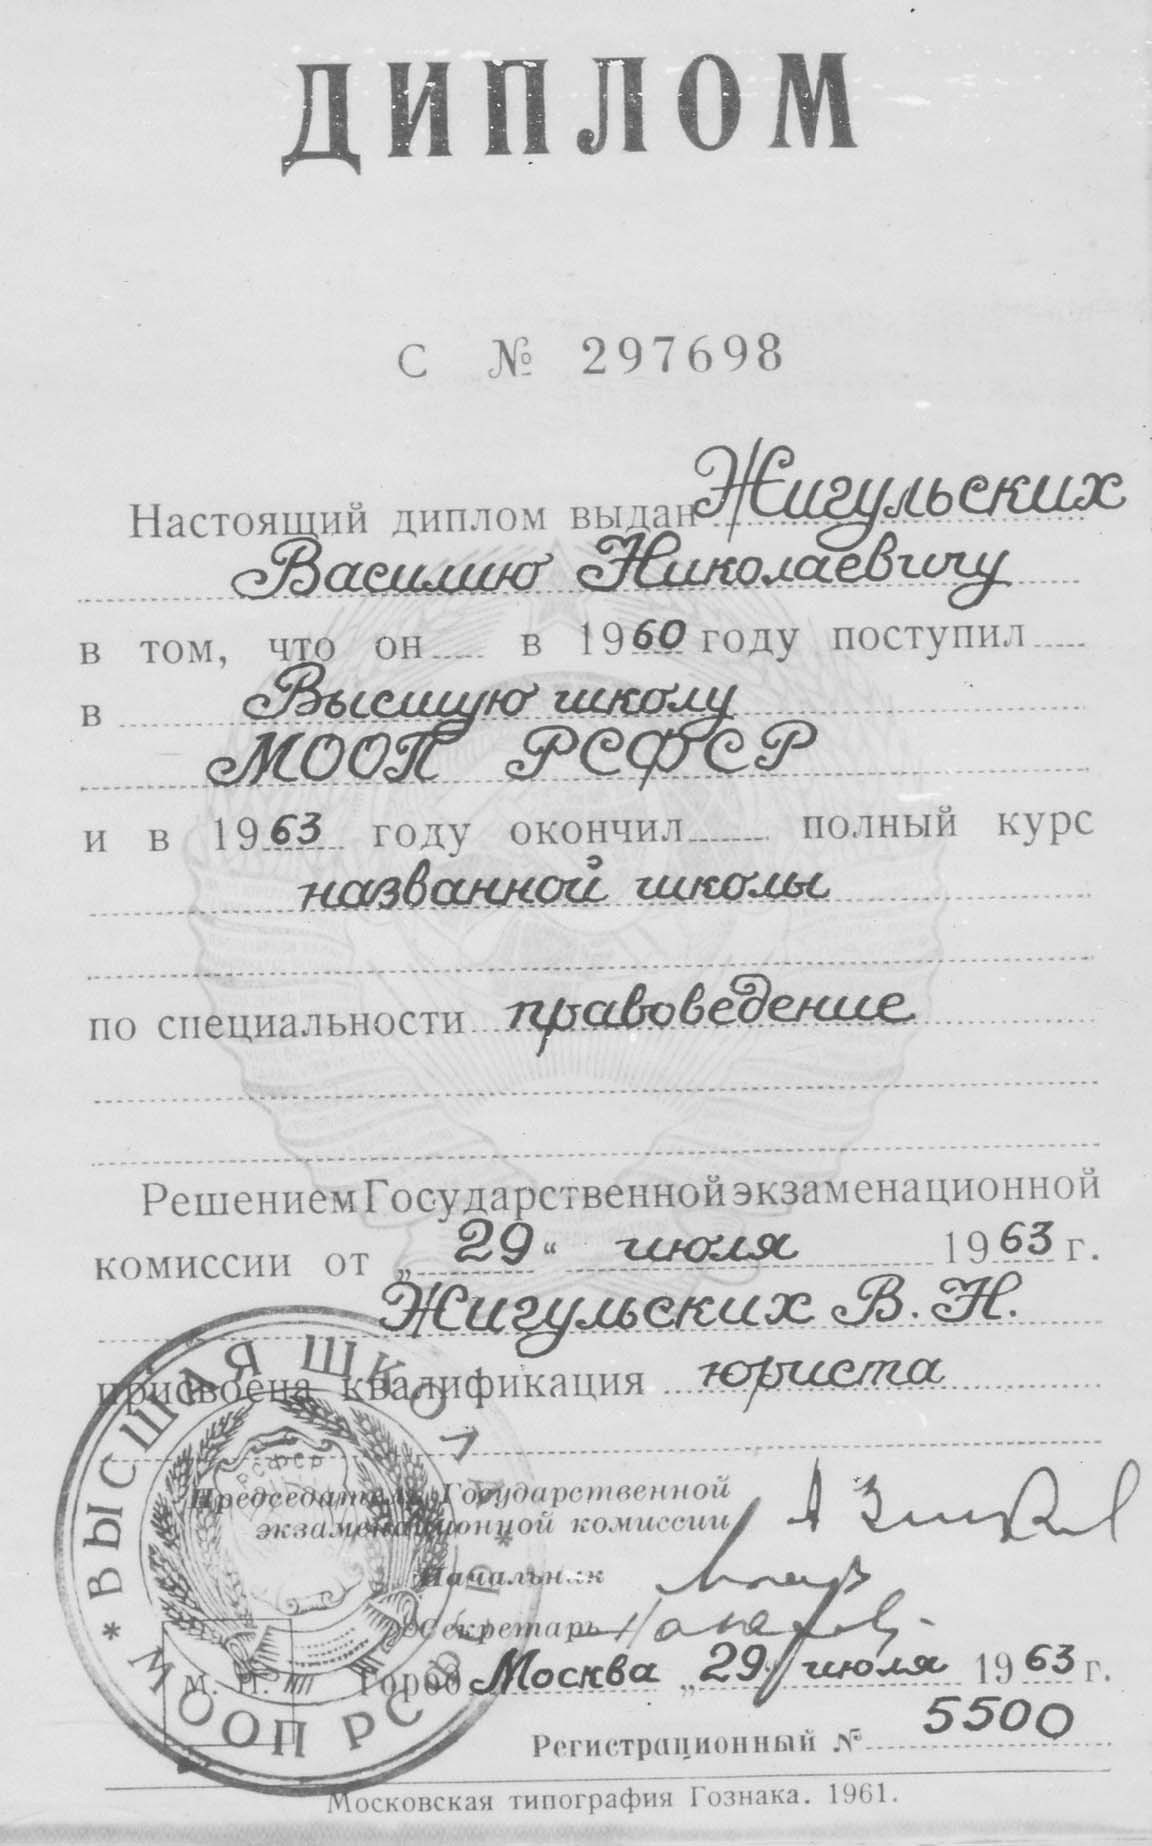 ДИПЛОМ
С № 297698
Настоящий диплом выдан Жигульских
Василию Николаевичу
в том, что он в 1960 году поступил
в Высшую школу
МООП РСФСР
и в 1963 году окончил полный курс
названной школы
по специальности правоведение
Решением Государственной экзаменационной
комиссии от „29“ июля 1963 г.
Жигульских В. Н.
присвоена квалификация юриста
Председатель Государственной
экзаменационной комиссии
Начальник
Секретарь
М. П. Город Москва „29“ июля 1963 г.
Регистрационный № 5500
Московская типография Гознака. 1961.
* ВЫСШАЯ ШКОЛА * МООП РСФСР
РСФСР